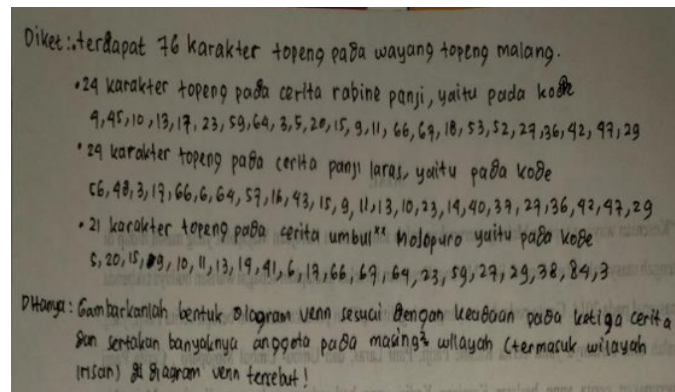 Diket: terdapat 76 karakter topeng pada wayang topeng malang.
• 24 karakter topeng pada cerita rabine panji, yaitu pada kode
4, 45, 10, 13, 17, 23, 59, 64, 3, 5, 20, 15, 9, 11, 66, 67, 18, 53, 52, 27, 36, 42, 47, 29
• 24 karakter topeng pada cerita panji laras, yaitu pada kode
56, 48, 3, 17, 66, 6, 64, 57, 16, 43, 15, 9, 11, 13, 10, 23, 14, 40, 37, 27, 36, 42, 47, 29
• 21 karakter topeng pada cerita umbul** molopuro yaitu pada kode
5, 20, 15, 9, 10, 11, 13, 14, 41, 6, 17, 66, 67, 64, 23, 59, 27, 29, 38, 84, 3
DHanya: Gambarkanlah bentuk Diagram venn sesuai dengan keadaan pada ketiga cerita
dan sertakan banyaknya anggota pada masing² wilayah (termasuk wilayah
irisan) di diagram venn tersebut!